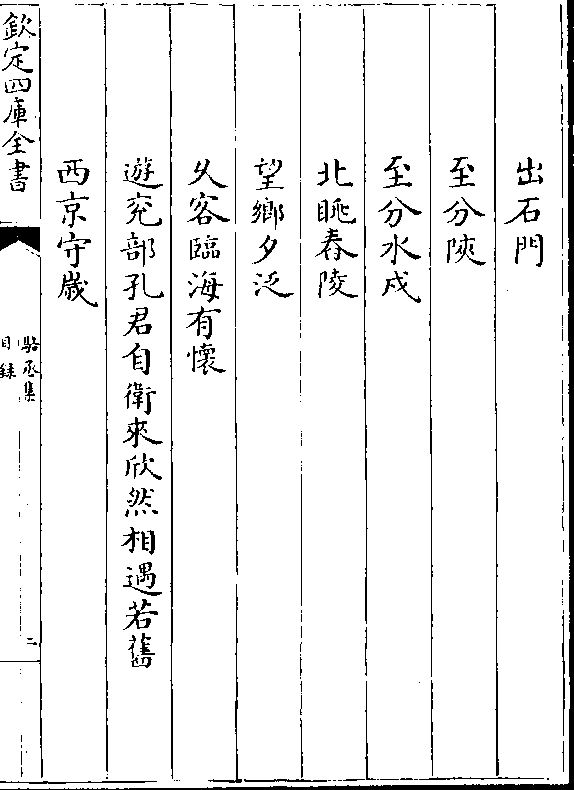 出石門
至分陜
至分水戍
北眺舂陵
望鄉夕泛
久客臨海有懷
遊兖部孔君自衛來欣然相遇若舊
西京守歲
欽定四庫全書
駱丞集
目録
二